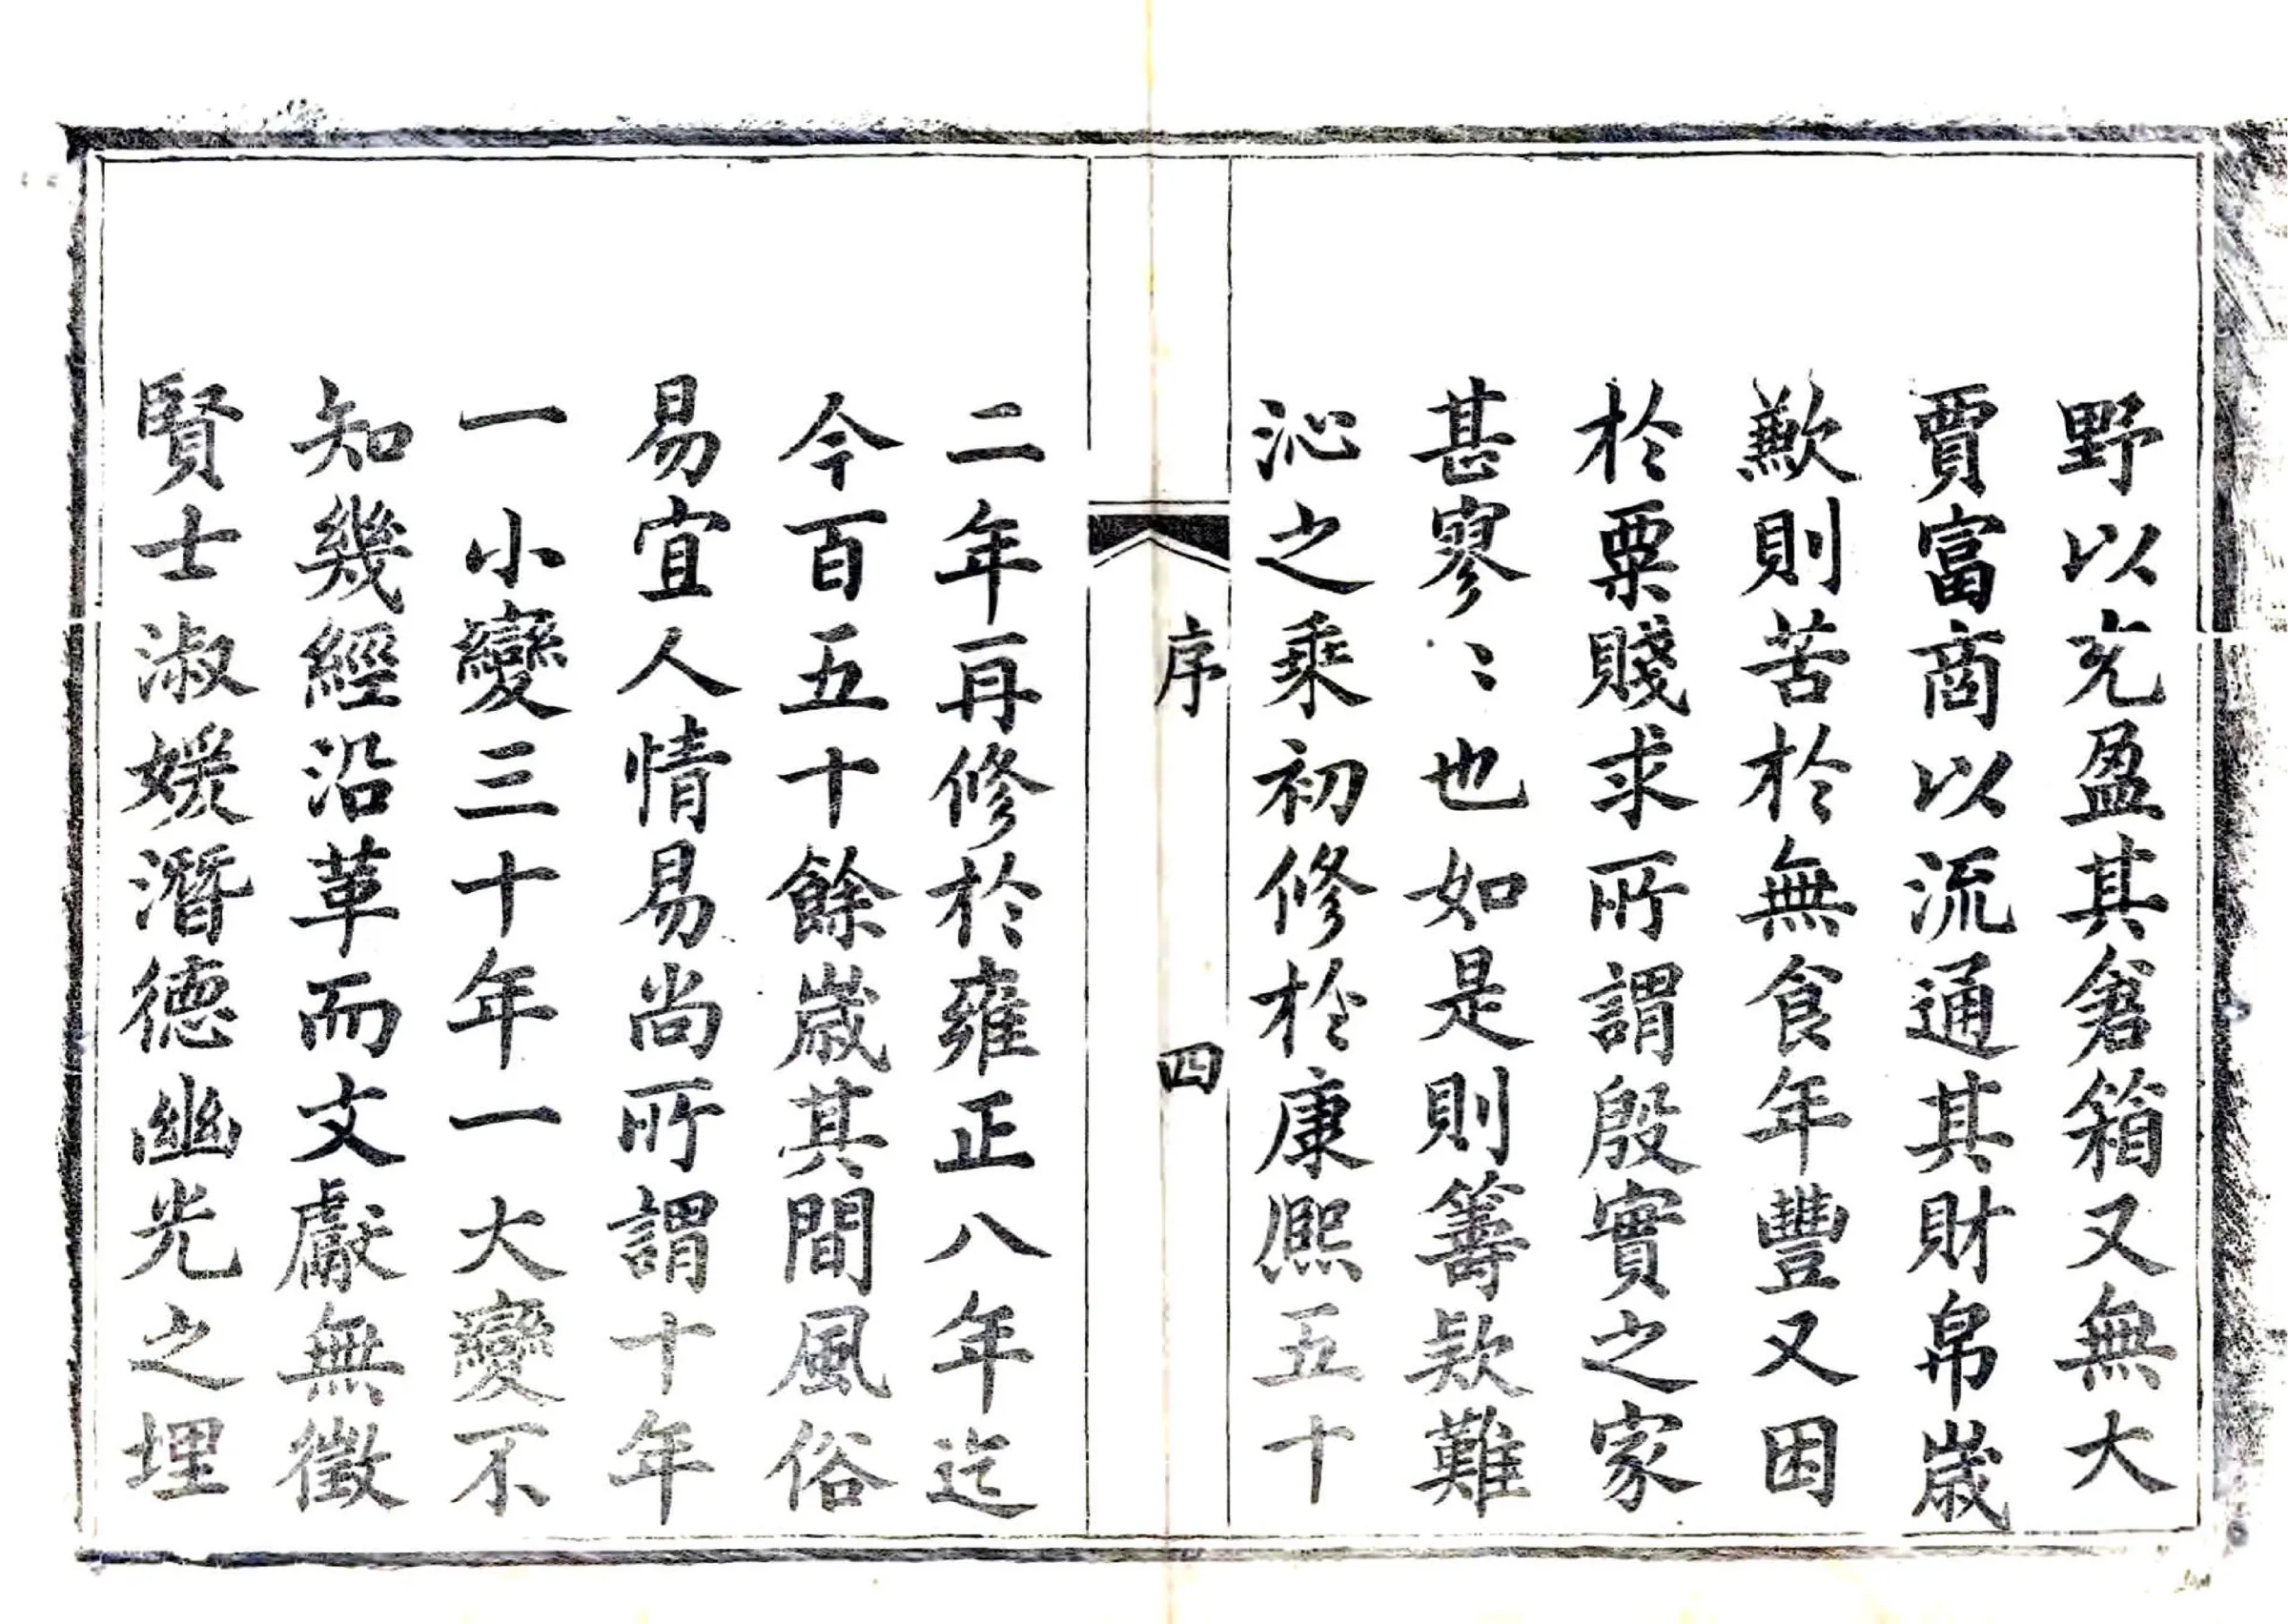 野以充盈其倉箱又無大
賈富商以流通其財帛歲
歉則苦於無食年豐又困
於粟賤求所謂殷實之家
甚寥〻也如是則籌款難
沁之乘初修於康熙五十
序
四
二年再修於雍正八年迄
今百五十餘歲其間風俗
易宜人情易尚所謂十年
一小變三十年一大變不
知幾經沿革而文獻無徵
賢士淑媛潛德幽光之埋